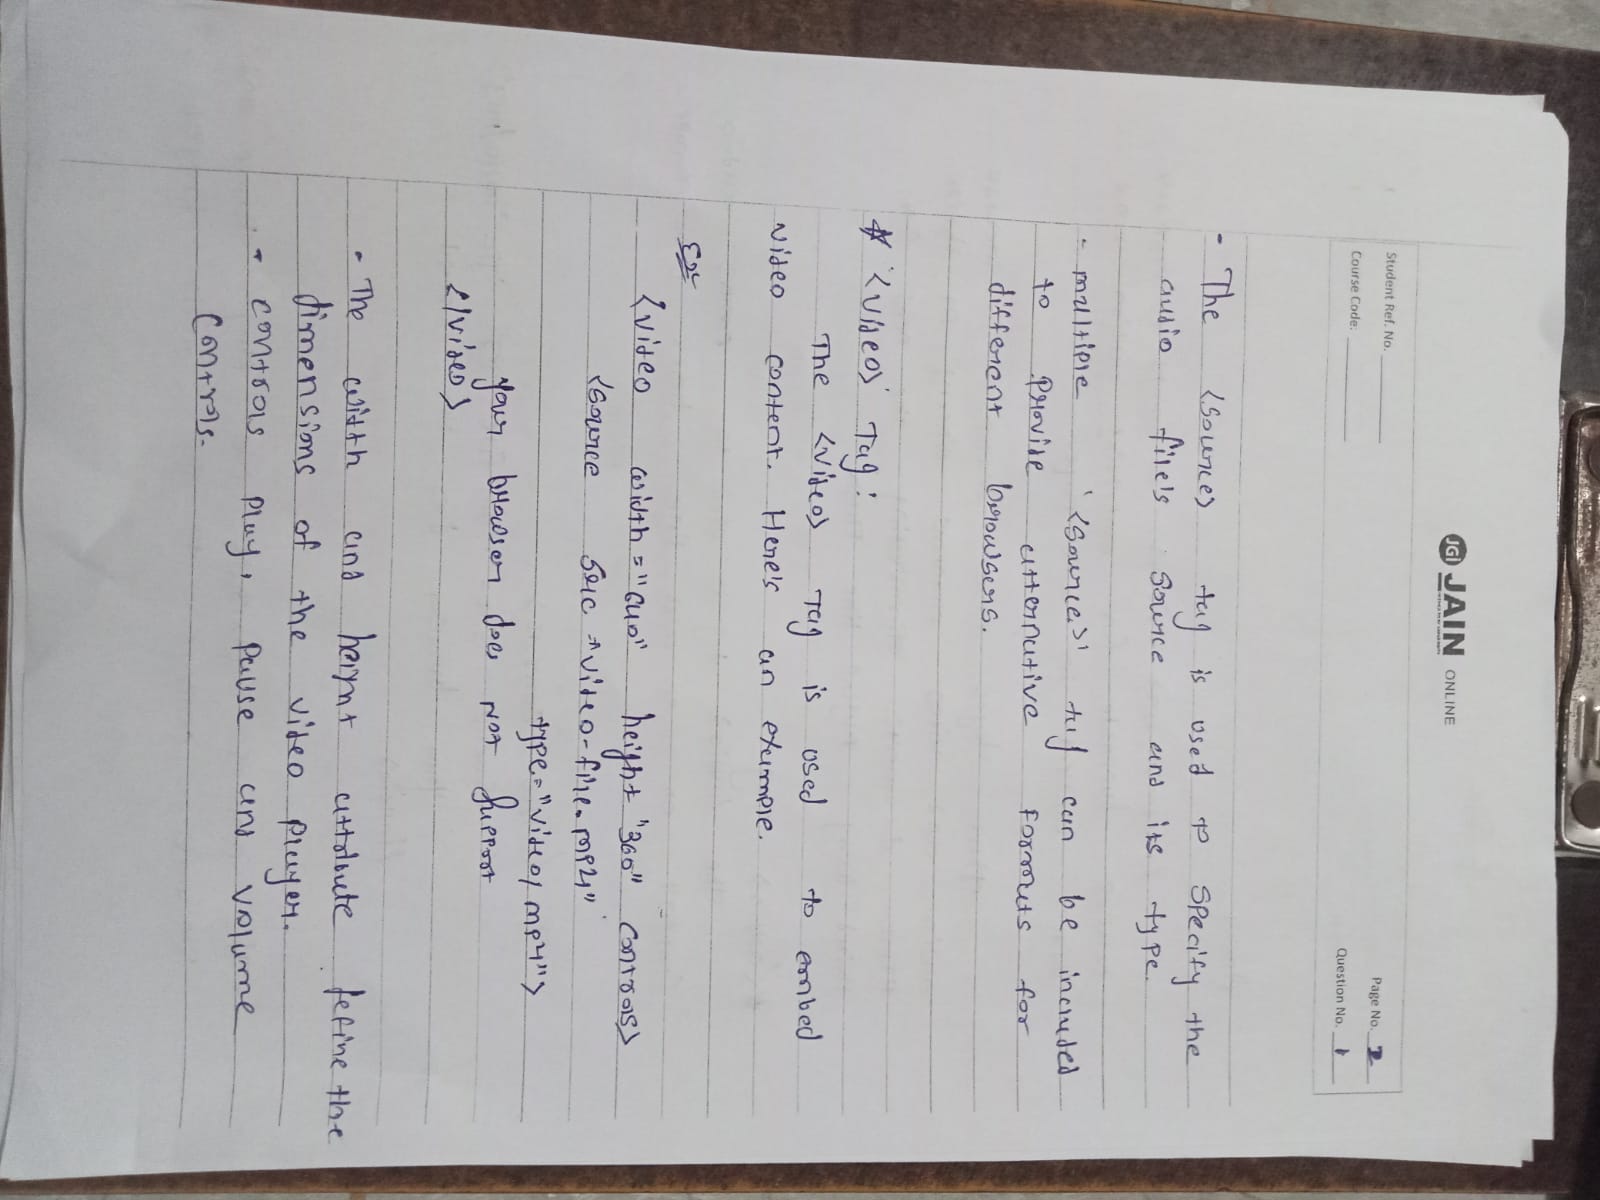 JGI JAIN ONLINE
Student Ref. No.
Course Code:
Page No. 2
Question No. 1
- The <source> tag is used to specify the
audio file's source and its type.
- multiple '<source>' tag can be included
to provide alternative formats for
different browsers.
# '<video>' Tag:
The <video> tag is used to embed
video content. Here's an example.
Ex
<video width="640" height "360" controls>
<source src "video-file.mp4"
type="video/mp4">
your browser does not support
</video>
- The width and height attribute define the
dimensions of the video player.
- controls play, pause and volume
controls.